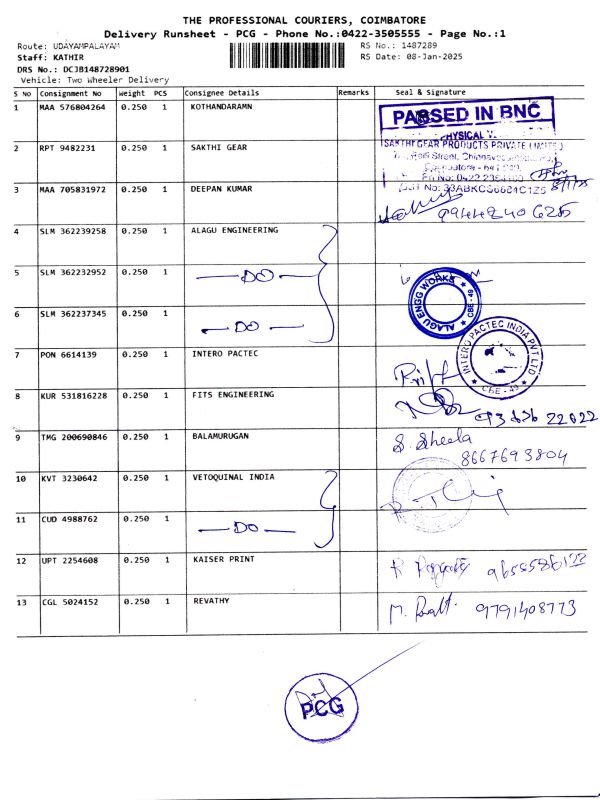 THE PROFESSIONAL COURIERS, COIMBATORE
Delivery Runsheet - PCG - Phone No.:0422-3505555 - Page No.:1
Route: UDAYAMPALAYAM
RS No.: 1487289
Staff: KATHIR
RS Date: 08-Jan-2025
DRS No.: DCJB148728901
Vehicle: Two Wheeler Delivery
S No Consignment No Weight PCS Consignee Details Remarks Seal & Signature
1 MAA 576804264 0.250 1 KOTHANDARAMN
PASSED IN BNC
PHYSICAL
2 RPT 9482231 0.250 1 SAKTHI GEAR
SAKTHI GEAR PRODUCTS PRIVATE LIMITED
Street, Chinnavedampatti
Coimbatore - 641
8/1/25
3 MAA 705831972 0.250 1 DEEPAN KUMAR
9944240625
4 SLM 362239258 0.250 1 ALAGU ENGINEERING
5 SLM 362232952 0.250 1 — DO —
ALAGU ENGG WORKS CBE - 49
6 SLM 362237345 0.250 1 — DO —
7 PON 6614139 0.250 1 INTERO PACTEC
INTERO PACTEC INDIA PVT LTD CBE - 49
8 KUR 531816228 0.250 1 FITS ENGINEERING
93636 22022
9 TMG 200690846 0.250 1 BALAMURUGAN
S. Sheela
8667693804
10 KVT 3230642 0.250 1 VETOQUINAL INDIA
11 CUD 4988762 0.250 1 — DO —
12 UPT 2254608 0.250 1 KAISER PRINT
13 CGL 5024152 0.250 1 REVATHY
M. 9791408773
PCG